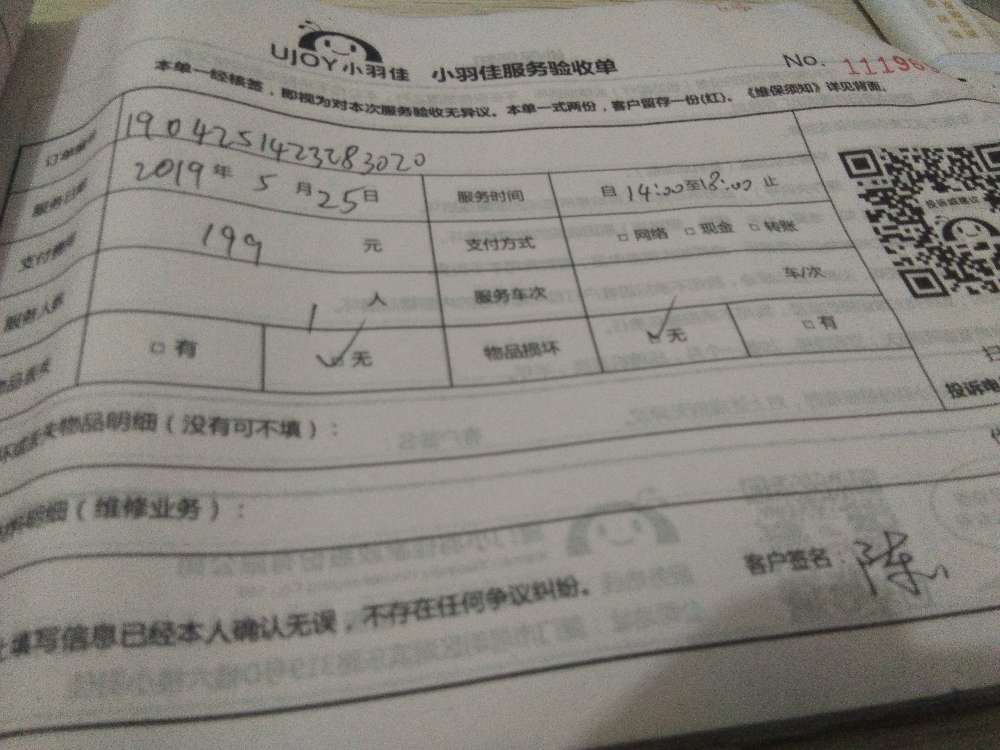 UJOY小羽佳 小羽佳服务验收单 No. 11196
本单一经核签，即视为对本次服务验收无异议。本单一式两份，客户留存一份(红)。《维保须知》详见背面。
订单编号 1904251423283020
服务日期 2019年5月25日 服务时间 自 14:00至18:00 止
支付 199 元 支付方式 □ 网络 □ 现金 □ 转账
服务人数 1 人 服务车次 车/次
□ 有 ☑ 无 物品损坏 ☑ 无 □ 有
投诉或建议
投诉电
物品明细（没有可不填）：
明细（维修业务）：
填写信息已经本人确认无误，不存在任何争议纠纷。
客户签名：陈